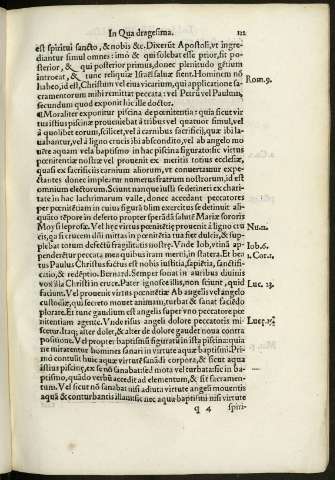 In Qua dragesima. 122
est spiritui sancto, & nobis &c. Dixerūt Apostoli, vt īngre
diantur simul omnes: imò & qui solebat esse prior, fit
posterior, & qui posterior primus, donec plenitudo gētium
introeat, & tunc reliquiæ Israël saluæ fient. Hominem nō
habeo, id est, Christum vel eius vicarium, qui applicatione sa-
cramentorum mihi remittat peccata: vel Petrū vel Paulum, Rom. 9.
secundum quod exponit hic ille doctor.
¶ Moraliter exponitur piscina de pœnitentia: quia sicut vir
tus illius piscinæ proueniebat à tribus vel quatuor simul, vel
à quolibet eorum, scilicet, vel à carnibus sacrificij, quæ ibi la-
uabantur, vel à ligno crucis ibi abscondito, vel ab angelo mo
uēte aquam vela baptismo in hac piscina figurato: sic virtus
pœnitentiæ nostræ vel prouenit ex meritis totius ecclesiæ,
quasi ex sacrificiis carnium aliorum, vt conuertamur expe-
ctantes donec impleatur numerus fratrum nostrorum, id est
omnium electorum. Sciunt nanque iusti se detineri ex chari-
tate in hac lachrimarum valle, donec accedant peccatores
per pœnitētiam
Moysi leprosa. Vel hęc virtus pœnitentię prouenit à ligno cru Nu. 12.
cis, qa si crucem dñi mittas in pœnitētia tua fiet dulcis, & sup-
plebat totum defectū fragilitatis nostrę. Vnde Iob, vtinā ap- Iob. 6.
penderētur peccata mea quibus iram merui, in statera. Et bea
tus Paulus, Christus factus est nobis iustitia, sapiētia, sanctifi- 1. Cor. 1.
catio, & redēptio. Bernard. Semper sonat in auribus diuinis
vox illa Christi in cruce. Pater ignosce illis, non sciunt, quid Luc. 23.
faciunt. Vel prouenit virtus pœnitētiæ Ab angelis vel angelo
custodiæ, qui secreto mouet animam, turbat & sanat faciēdo
plorare. Et tunc gaudium est angelis super vno peccatore pœ
nitentiam agente. Vnde risus angeli dolore peccatoris mi- Luc. 15.
scetur. Itaq; alter dolet, & alter de dolore gaudet noua contra
positione. Vel propter baptismū figuratū in ista piscina: quia
ne mirarentur homines sanari in virtute aquæ baptismi: Pri-
mò constuit huic aquæ virtutē sanādi corpora, & sicut aqua
istius piscinę, ex se nō sanabat: sed mota vel turbata: sic in ba-
ptismo, quādo verbū accedit ad elementum, & fit sacramen-
tum. Vel sicut ex se nō sanabat nisi adiuta virtute angeli mouentis
aquā & conturbantis illam: sic nec aqua baptismi nisi virtute
q 4 spiri-